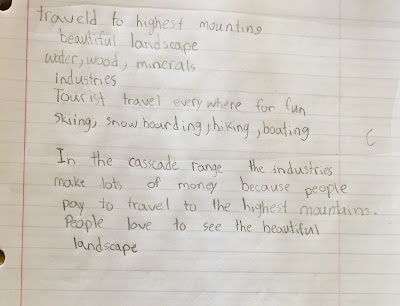 traveld to highest mounting
beautiful landscape
water, wood, minerals
industries
Tourist travel everywhere for fun
skiing, snowboarding, hiking, boating
In the casscade range the industries
make lots of money because people
pay to travel to the highest mountains.
People love to see the beautiful
landscape